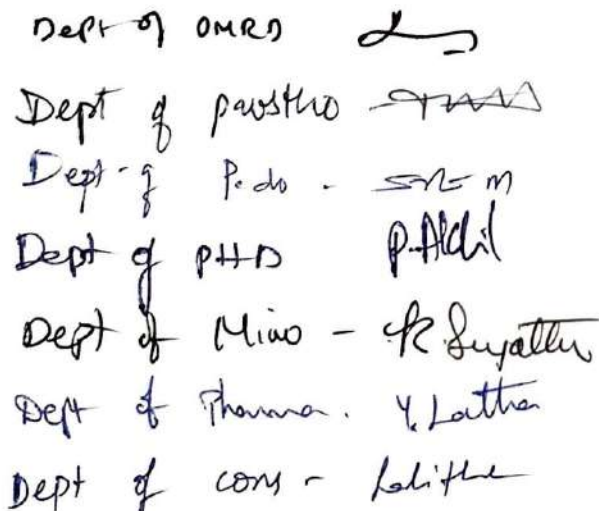 Dept of OMRD
Dept of prostho
Dept of Pedo -
Dept of PHD P. Akhil
Dept of Micro - K Sujatha
Dept of Pharma. Y. Latha
Dept of cons - Lalitha